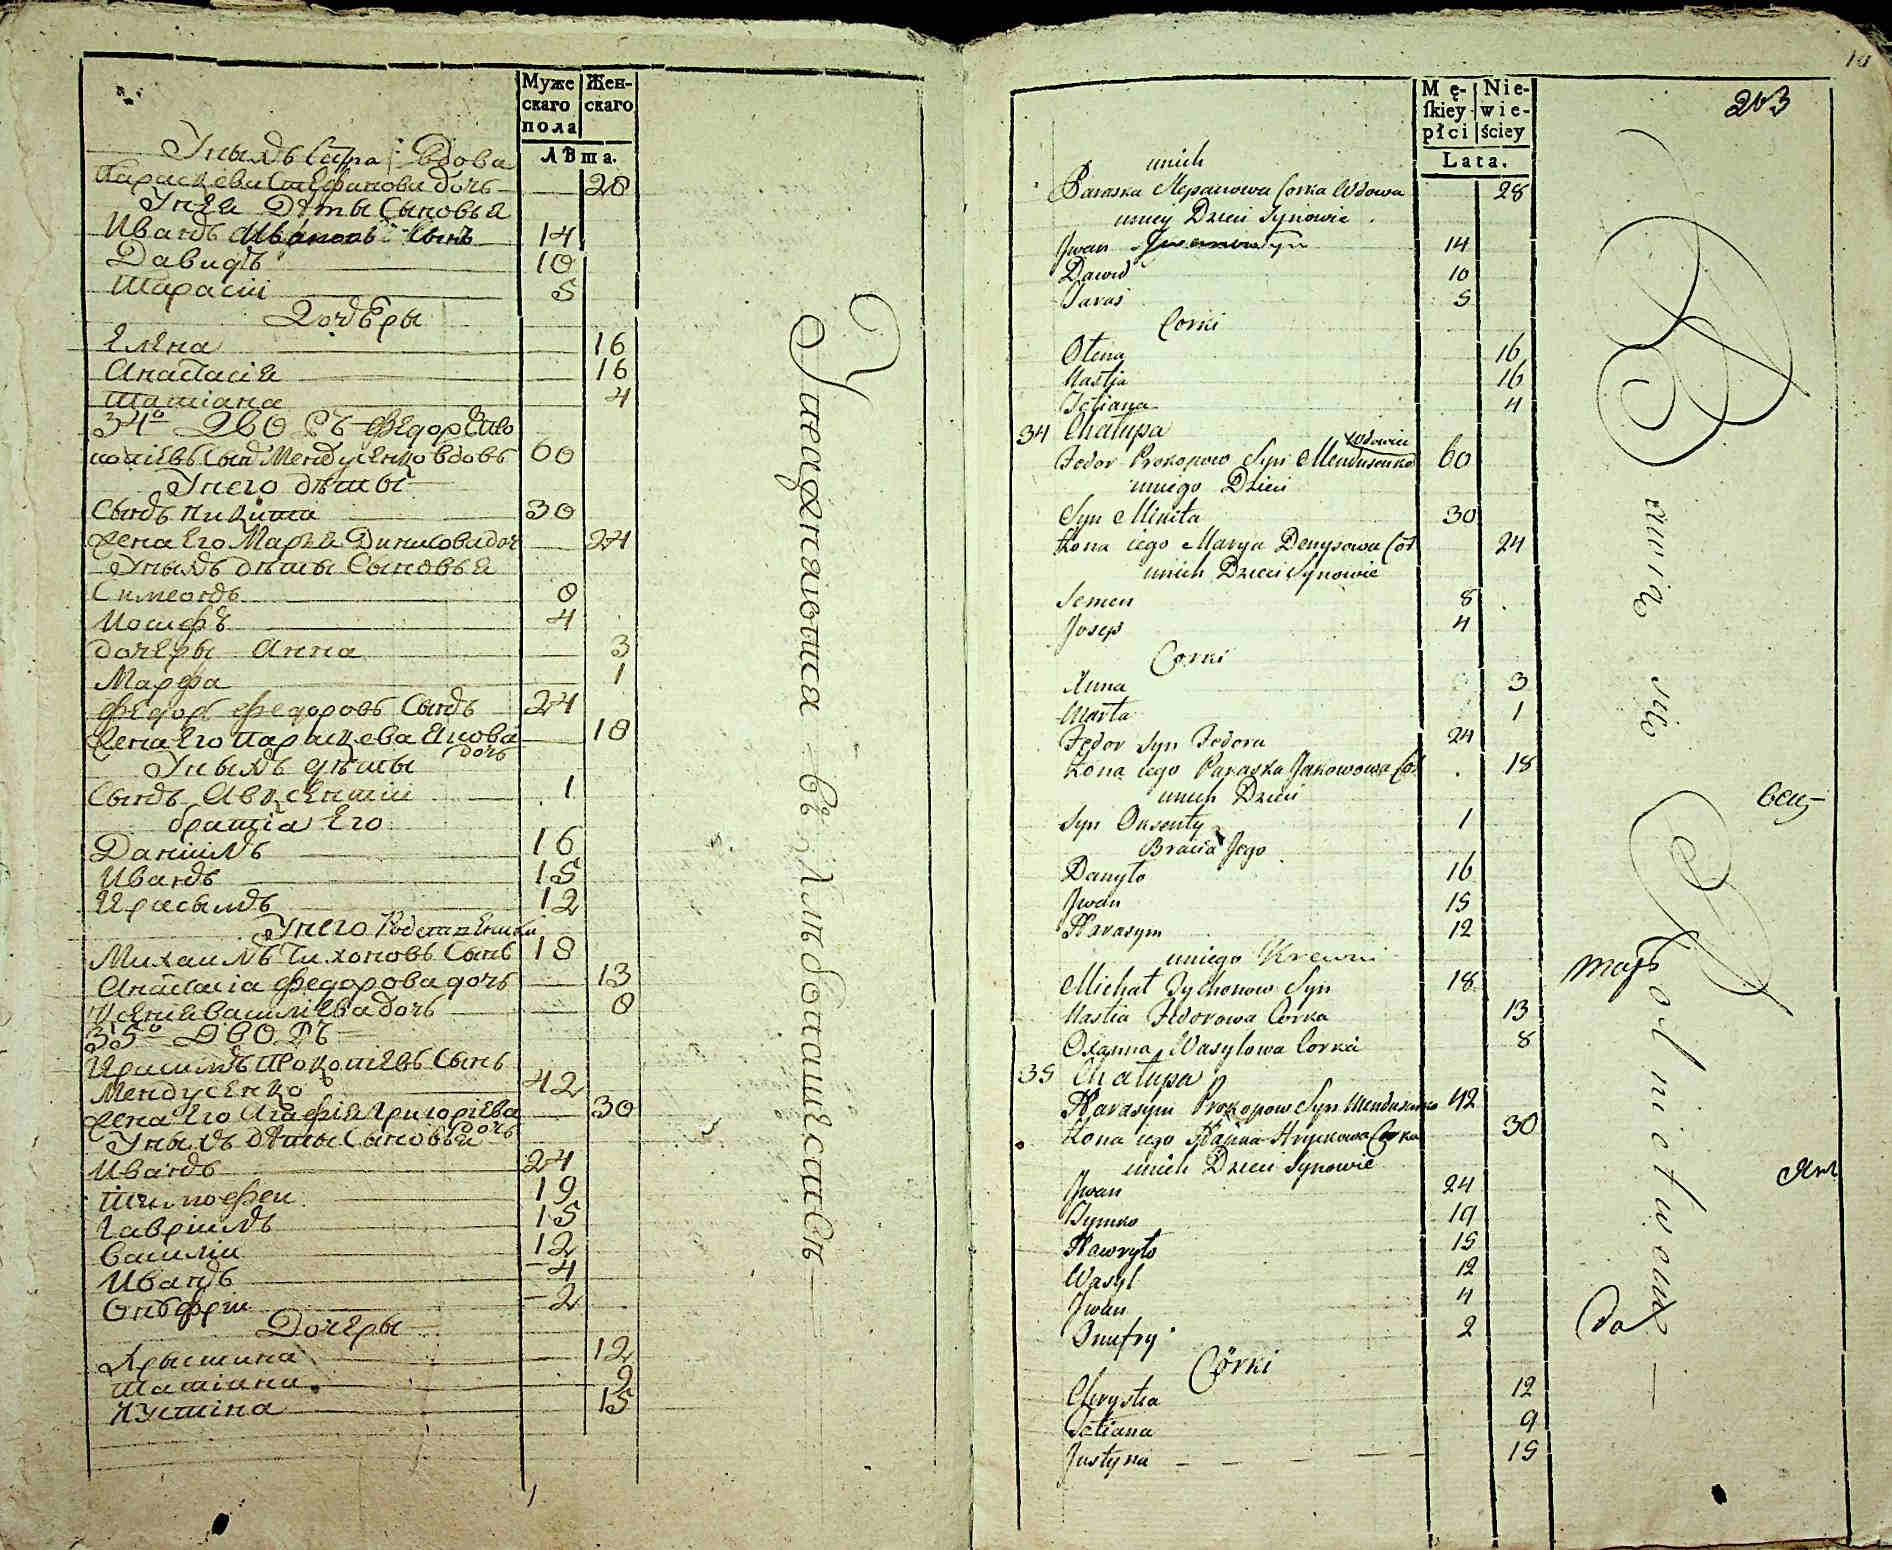 Муже
скаго
пола
Жен-
скаго
Лѣта.
У ныхъ Сестра вдова
Параскева Стефанова дочь 28
У нея Дѣты Сыновья
Иванъ Ивановъ Сынъ 14
Давидъ 10
Тарасій 5
Дочеры
Елена 16
Анастасія 16
Татіана 4
34º Дворъ Федоръ Про
копіевъ Сынъ Мендусенко вдовъ 60
У него дѣты
Сынъ Никита 30
жена Его Марья Динисова доч 24
У ныхъ дѣты Сыновья
Симеонъ 8
Иосифъ 4
дочеры Анна 3
Марфа 1
Федоръ Федоровъ Сынъ 24
жена Его Параскева Якова
дочь 18
У ныхъ дѣты
Сынъ Авксентій 1
братія Его
Даніилъ 16
Иванъ 15
Ирасымъ 12
У него Родственники
Михаилъ Тихоновъ Сынъ 18
Анастасія Федорова дочь 13
Ксенія Василіева дочь 8
35º Дворъ
Ирасимъ Прокопіевъ Сынъ
Мендусенко 42
жена Его Агафія Григоріева
дочь 30
У ныхъ дѣты Сыновья
Иванъ 24
Тимофей 19
Гавріилъ 15
Василій 12
Иванъ 4
Онуфрій 2
Дочеры
Хрыстина 12
Татіана 9
Іустина 15
въ
10
203
Mę-
ſkiey
płci
Nie-
wie-
ściey
Lata.
unich
Paraska Stepanowa Corka Wdowa 28
uniey Dzieci Synowie
Jwan Jwanow Syn 14
Dawid 10
Taras 5
Corki
Olena 16
Nastia 16
Tetiana 4
34 Chałupa
Wdowiec
Fedor Prokopow Syn Mendusenko 60
uniego Dzieci
Syn Mikita 30
Żona iego Marya Denysowa Cor 24
unich Dzieci Synowie
Semen 8
Josep 4
Corki
Anna 3
Marta 1
Fedor Syn Fedora 24
Żona iego Paraska Jakowowa Cor 18
unich Dzieci
Syn Oxenty 1
Bracia Jego
Danyło 16
Jwan 15
Harasym 12
uniego Krewni
Michał Tychonow Syn 18
Nastia Fedorowa Corka 13
Oxanna Wasylowa Corka 8
35 Chałupa
Harasym Prokopow Syn Mendusenko 42
Żona iego Hapka Hryckowa Corka 30
unich Dzieci Synowie
Jwan 24
Tymko 19
Hawryło 15
Wasyl 12
Jwan 4
Onufry 2
Córki
Chrystia 12
Tetiana 9
Justyna 15